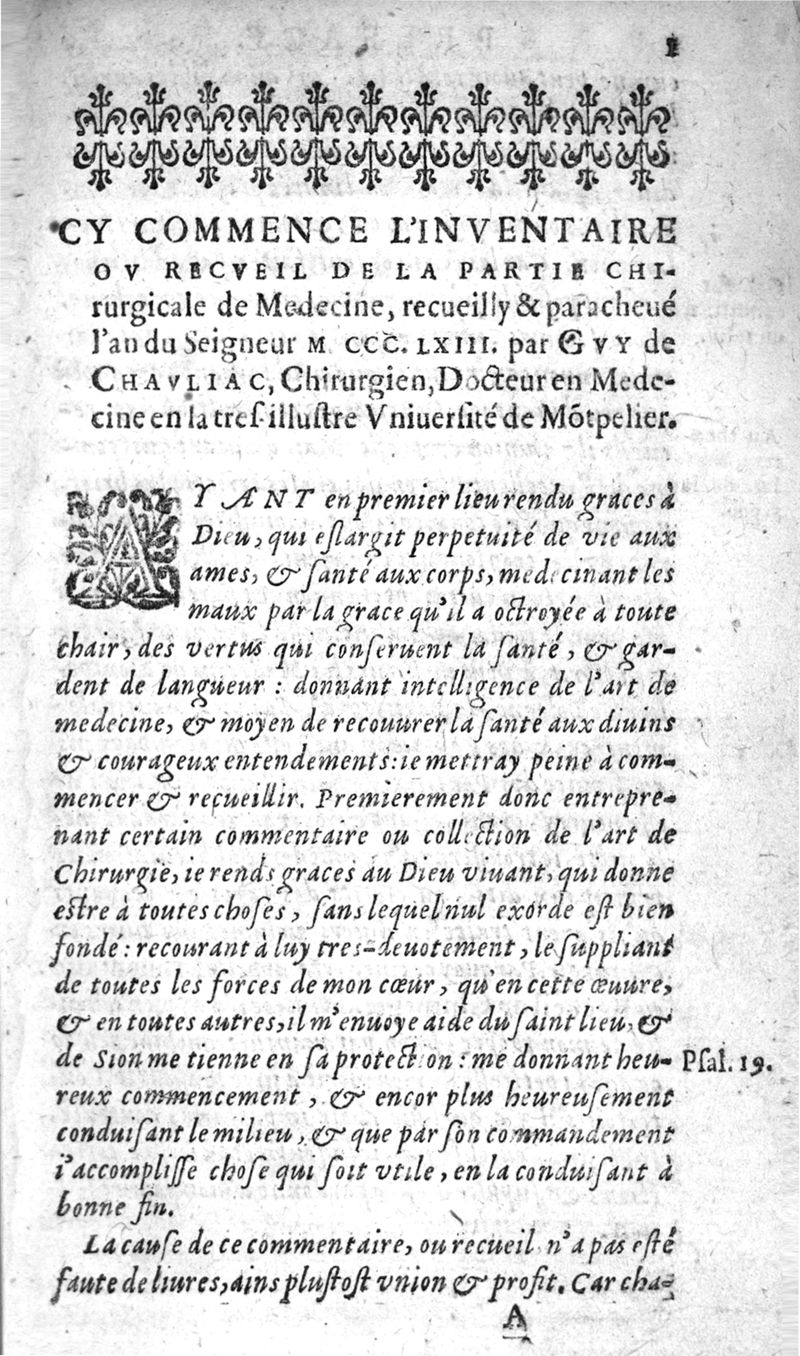 1
CY COMMENCE L'INVENTAIRE
OV RECVEIL DE LA PARTIE CHI-
rurgicale de Medecine, recueilly & paracheué
l'an du Seigneur M CCC. LXIII. par GVY de
CHAVLIAC, Chirurgien, Docteur en Mede-
cine en la tres-illustre Vniuersité de Mõtpelier.
AYANT en premier lieu rendu graces à
Dieu, qui eslargit perpetuité de vie aux
ames, & santé aux corps, medecinant les
maux par la grace qu'il a octroyée à toute
chair, des vertus qui conseruent la santé, & gar-
dent de langueur : donnant intelligence de l'art de
medecine, & moyen de recouurer la santé aux diuins
& courageux entendements: ie mettray peine à com-
mencer & reçueillir. Premierement donc entrepre-
nant certain commentaire ou collection de l'art de
Chirurgie, ie rends graces au Dieu viuant, qui donne
estre à toutes choses, sans lequel nul exorde est bien
fondé : recourant à luy tres-deuotement, le suppliant
de toutes les forces de mon cœur, qu'en cette œuure,
& en toutes autres, il m'enuoye aide du saint lieu, &
de Sion me tienne en sa protection : me donnant heu- Psal. 19.
reux commencement, & encor plus heureusement
conduisant le milieu, & que par son commandement
i'accomplisse chose qui soit vtile, en la conduisant à
bonne fin.
La cause de ce commentaire, ou recueil n'a pas esté
faute de liures, ains plustost vnion & profit. Car cha-
A